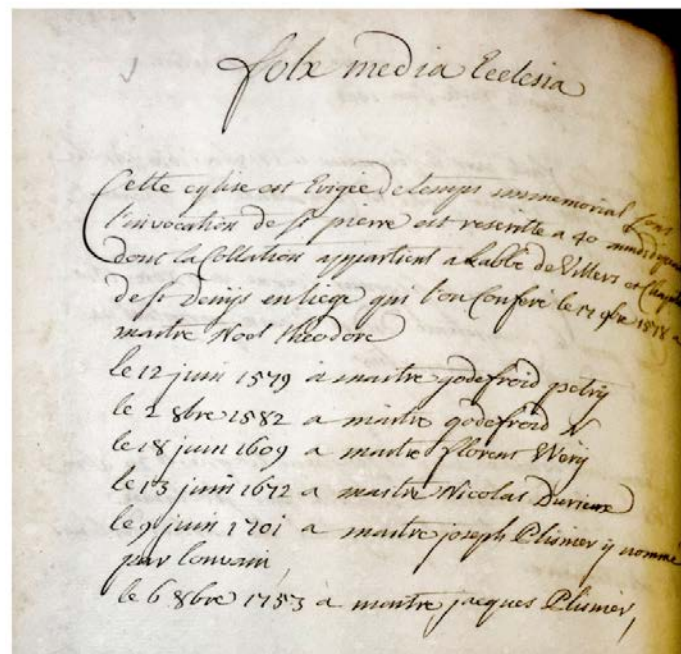 folx media Ecclesia
Cette eglise est Erigée de temps immemorial sous
l'invocation de st pierre est rescritte a 40
dont la Collation appartient a Labbé de Villers et Chapitre
de st Denijs en liege qui l'on Conferé le 17 9bre 1578 a
maitre Noel theodore
le 12 juin 1579 a maitre godefroid petrij
le 2 8bre 1582 a maitre godefroid N
le 18 juin 1609 a maitre florent Werij
le 13 juin 1672 a maitre Nicolas Durieux
le 9 juin 1701 a maitre joseph Plisnier ij nommé
par louvain
le 6 8bre 1753 a maitre jacques Plisnier,